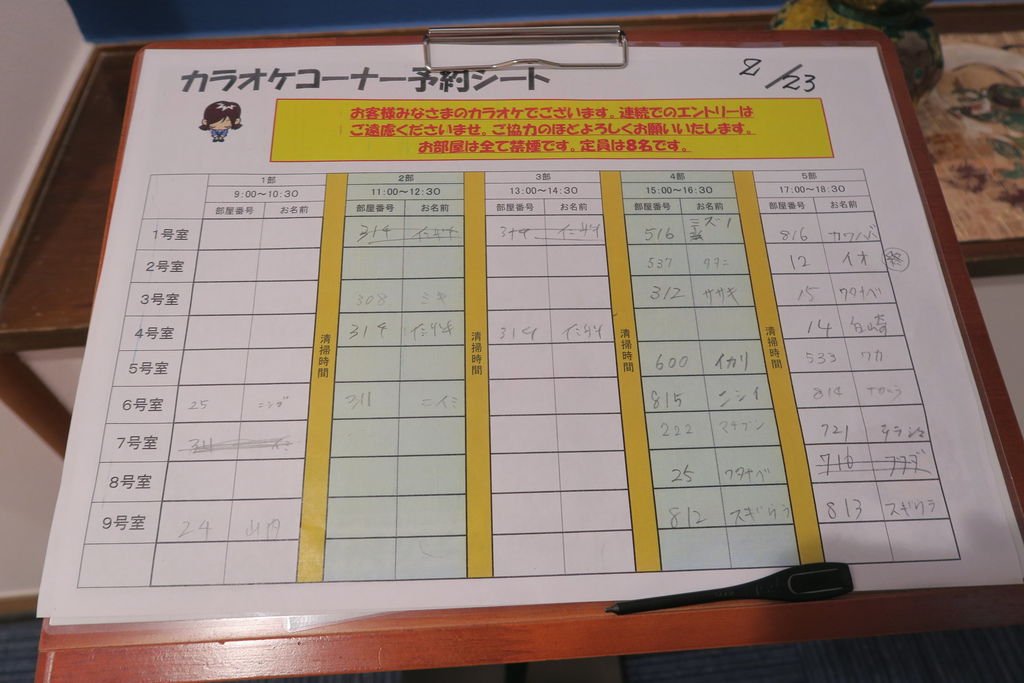 カラオケコーナー予約シート
2/23
お客様みなさまのカラオケでございます。連続でのエントリーは
ご遠慮くださいませ。ご協力のほどよろしくお願いいたします。
お部屋は全て禁煙です。定員は8名です。
1部 2部 3部 4部 5部
9:00～10:30 11:00～12:30 13:00～14:30 15:00～16:30 17:00～18:30
部屋番号 お名前 部屋番号 お名前 部屋番号 お名前 部屋番号 お名前 部屋番号 お名前
1号室 314 314 516 ミズノ 816 カワバ
2号室 537 タナニ 12 イオ 終
3号室 308 ミキ 312 ササキ 15 ワタナベ
4号室 314 314 14
5号室 600 イカリ 533 ワカ
6号室 25 311 ニイミ 815 ニシイ 814
7号室 311 222 721
8号室 25 ワタナベ 710
9号室 24 山内 812 スギウラ 813 スギウラ
清掃時間
清掃時間
清掃時間
清掃時間